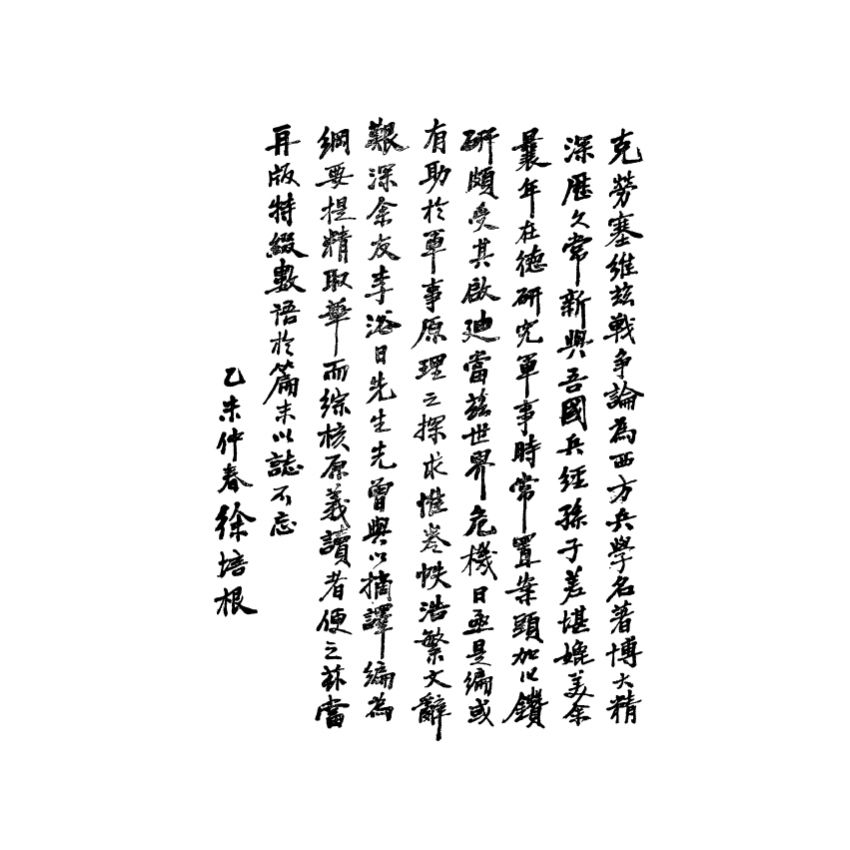 克勞塞維茲戰爭論為西方兵學名著博大精
深歷久常新與吾國兵經孫子差堪媲美余
曩年在德研究軍事時常置案頭加以鑽
研頗受其啟廸當茲世界危機日亟是編或
有助於軍事原理之探求惟卷帙浩繁文辭
艱深余友李浴日先生先曾與以摘譯編為
綱要提精取華而綜核原義讀者便之茲當
再版特綴數語於篇末以誌不忘
乙未仲春徐培根